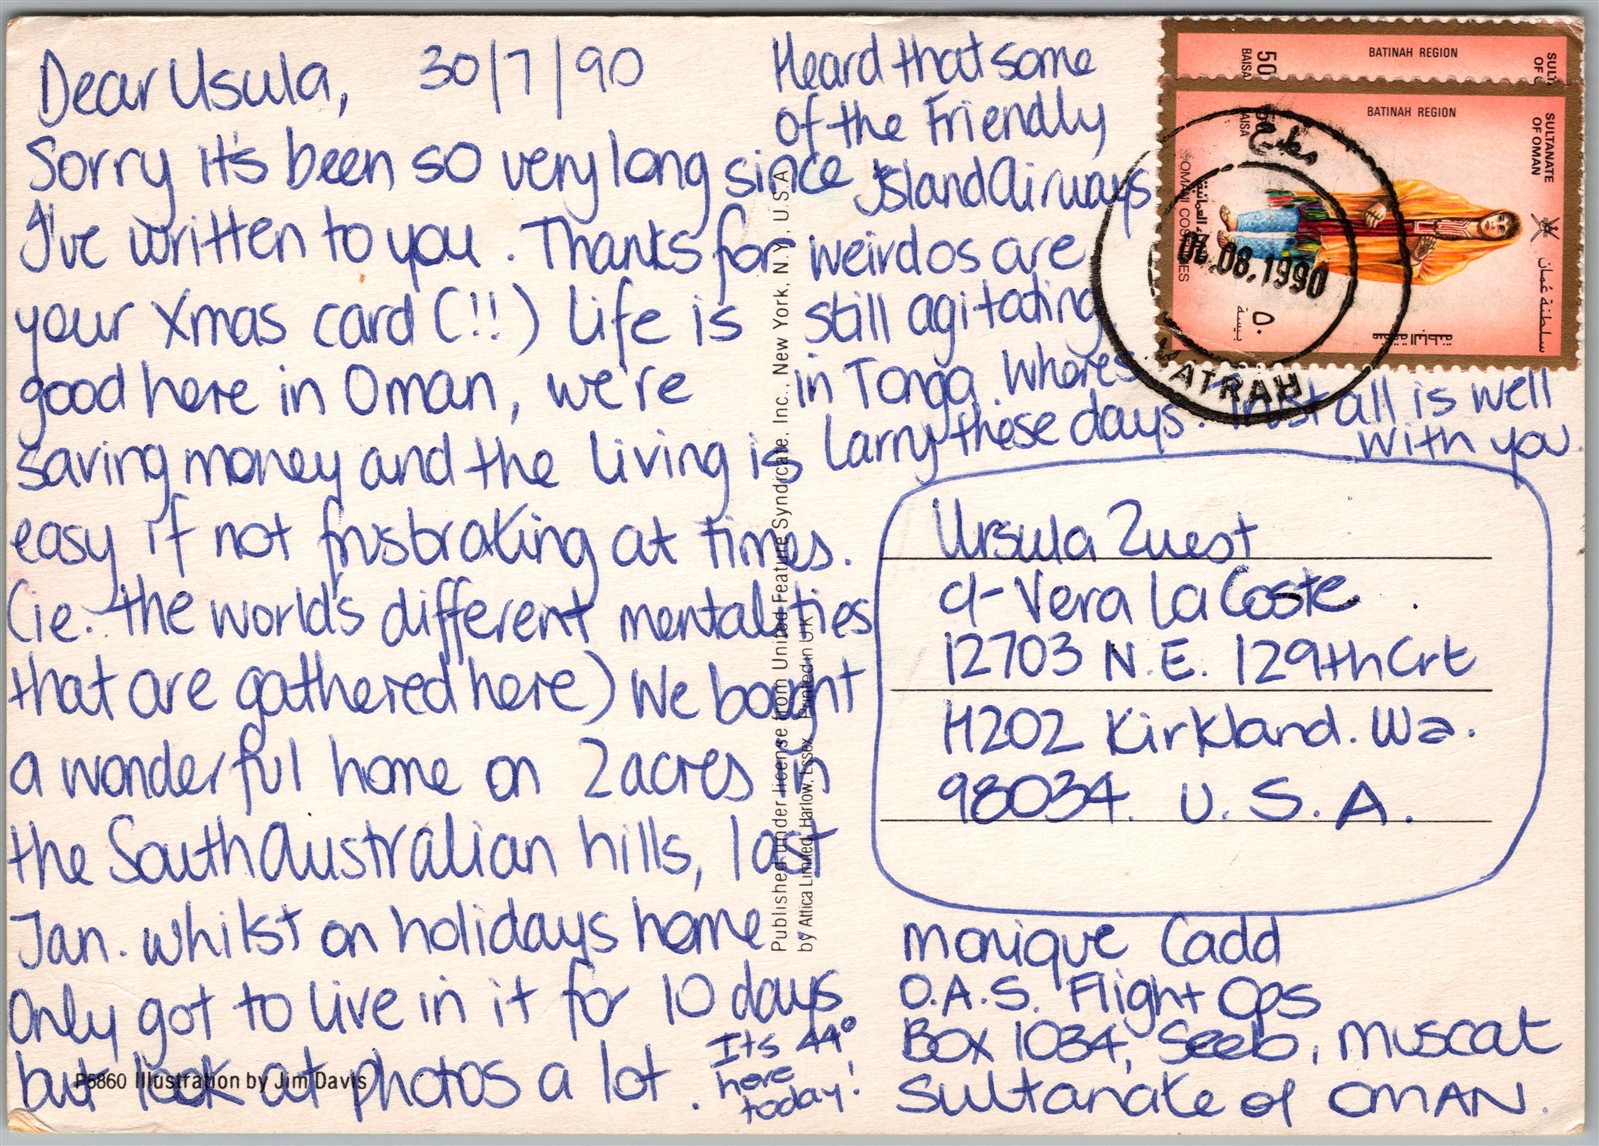 Dear Usula, 30/7/90
Sorry it's been so very long since
I've written to you. Thanks for
your Xmas card (!!) Life is
good here in Oman, we're
saving money and the living is
easy if not frusbrating at times.
(ie. the world's different mentalities
that are gathered here) We bought
a wonderful home on 2 acres in
the South Australian hills, last
Jan. whilst on holidays home.
Only got to live in it for 10 days
but look at photos a lot.
It's 44°
here
today!
Heard that some
of the Friendly
Island Airways
weirdos are
still agitating
in Tonga. Where's
Larry these days. Trust all is well
with you.
Ursula Zuest
c/- Vera La Coste
12703 N.E. 129th Crt
H202 Kirkland. Wa.
98034. U.S.A.
Monique Cadd
O.A.S. Flight Ops
Box 1034, Seeb, Muscat
Sultanate of OMAN.
P5860 Illustration by Jim Davis
Published under license from United Feature Syndicate, Inc., New York, N.Y., U.S.A.
by Attica Limited, Harlow, Essex. Printed in U.K.
BATINAH REGION
50
BAISA
BATINAH REGION
SULTANATE
OF OMAN
سلطنة عمان
٥٠
بيسة
مطرح
06.08.1990
MATRAH